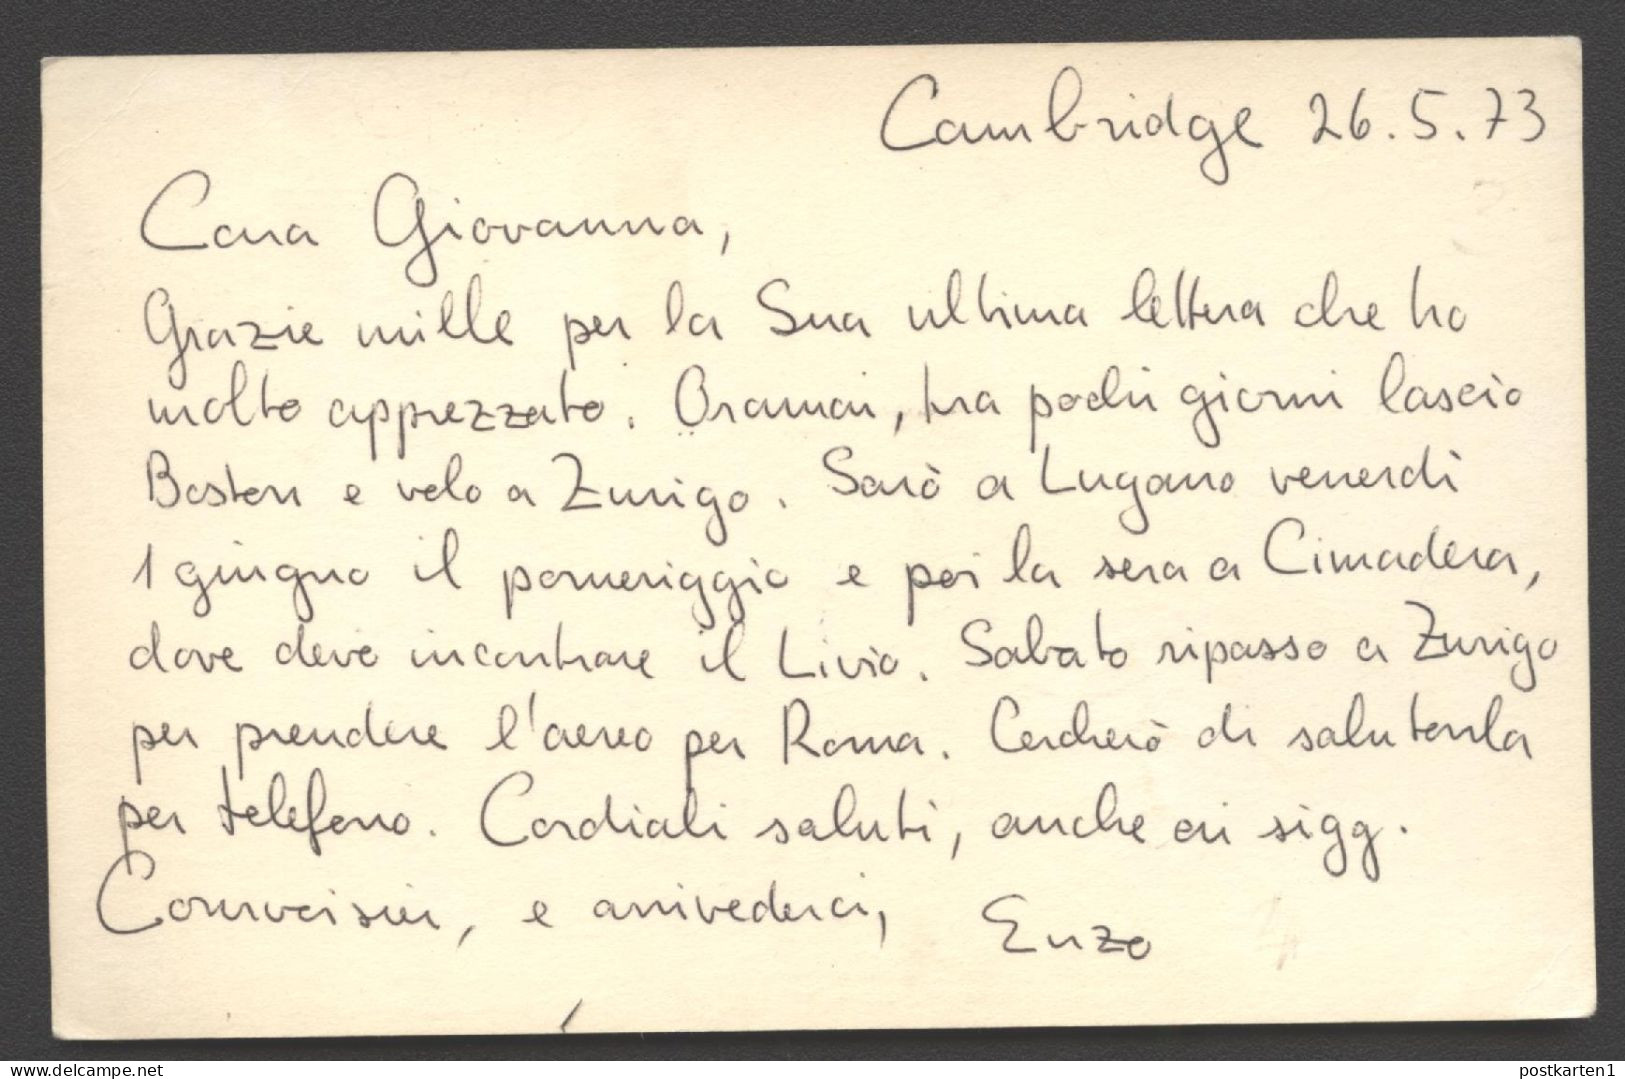 Cambridge 26.5.73
Cara Giovanna,
Grazie mille per la Sua ultima lettera che ho
molto apprezzato. Oramai, tra pochi giorni lascio
Boston e volo a Zurigo. Sarò a Lugano venerdì
1 giugno il pomeriggio e poi la sera a Cimadera,
dove devo incontrare il Livio. Sabato ripasso a Zurigo
per prendere l'aereo per Roma. Cercherò di salutarla
per telefono. Cordiali saluti, anche ai sigg.
Courvoisier, e arrivederci, Enzo
delcampe.net
postkarten1